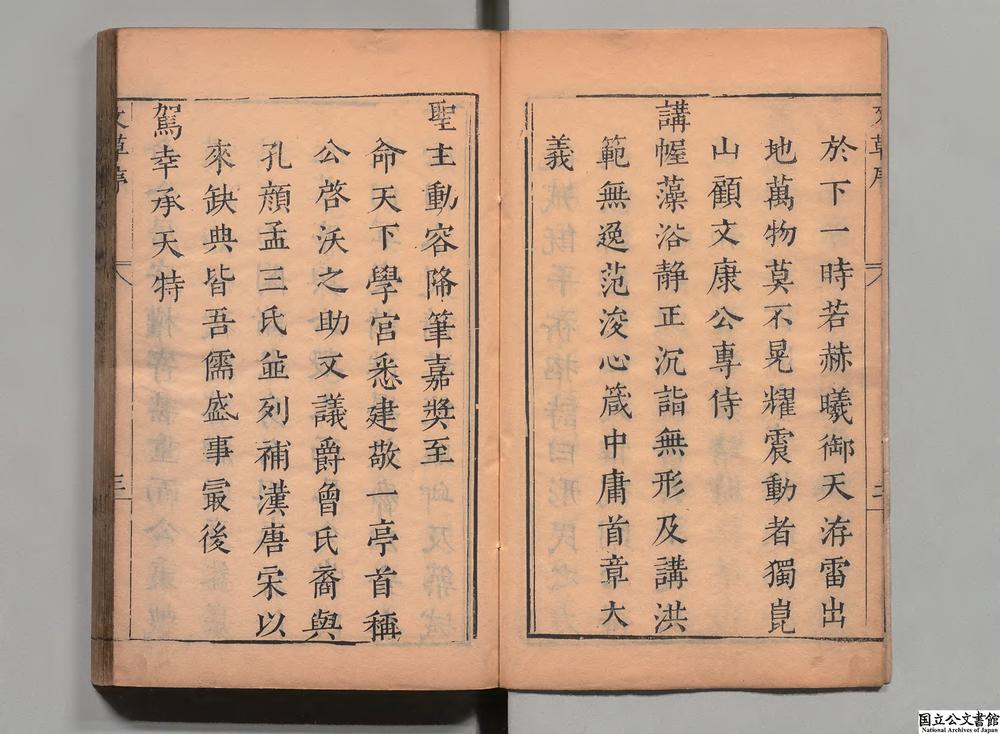 於下一時若赫曦御天洊雷出
地萬物莫不晃耀震動者獨崑
山顧文康公專侍
講幄藻浴静正沉詣無形及講洪
範無逸范浚心箴中庸首章大
義
聖主動容降筆嘉奬至
命天下學宮悉建敬一亭首稱
公啓沃之助又議爵曾氏裔與
孔顔孟三氏並列補漢唐宋以
來缺典皆吾儒盛事最後
駕幸承天特
文草序
三
国立公文書館
National Archives of Japan